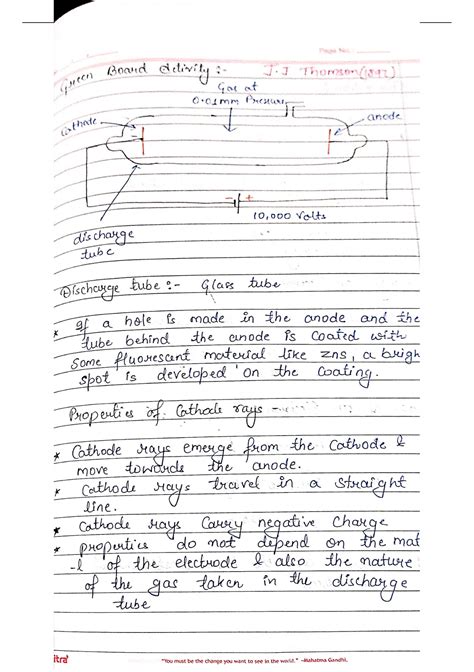 Page No.
Green Board Activity :- J.J Thomson (1897)
Gas at
0.01mm Pressure
cathode
anode
- +
10,000 Volts
discharge
tube
Discharge tube :- Glass tube
* If a hole is made in the anode and the
tube behind the anode is coated with
some fluorescent material like zns, a brigh
spot is developed on the coating.
Properties of Cathode rays
* Cathode rays emerge from the cathode &
move towards the anode.
* Cathode rays travel in a straight
line.
* Cathode rays carry negative charge
* properties do not depend on the mat
-l of the electrode & also the nature
of the gas taken in the discharge
tube
itra
"You must be the change you want to see in the world." -Mahatma Gandhi.